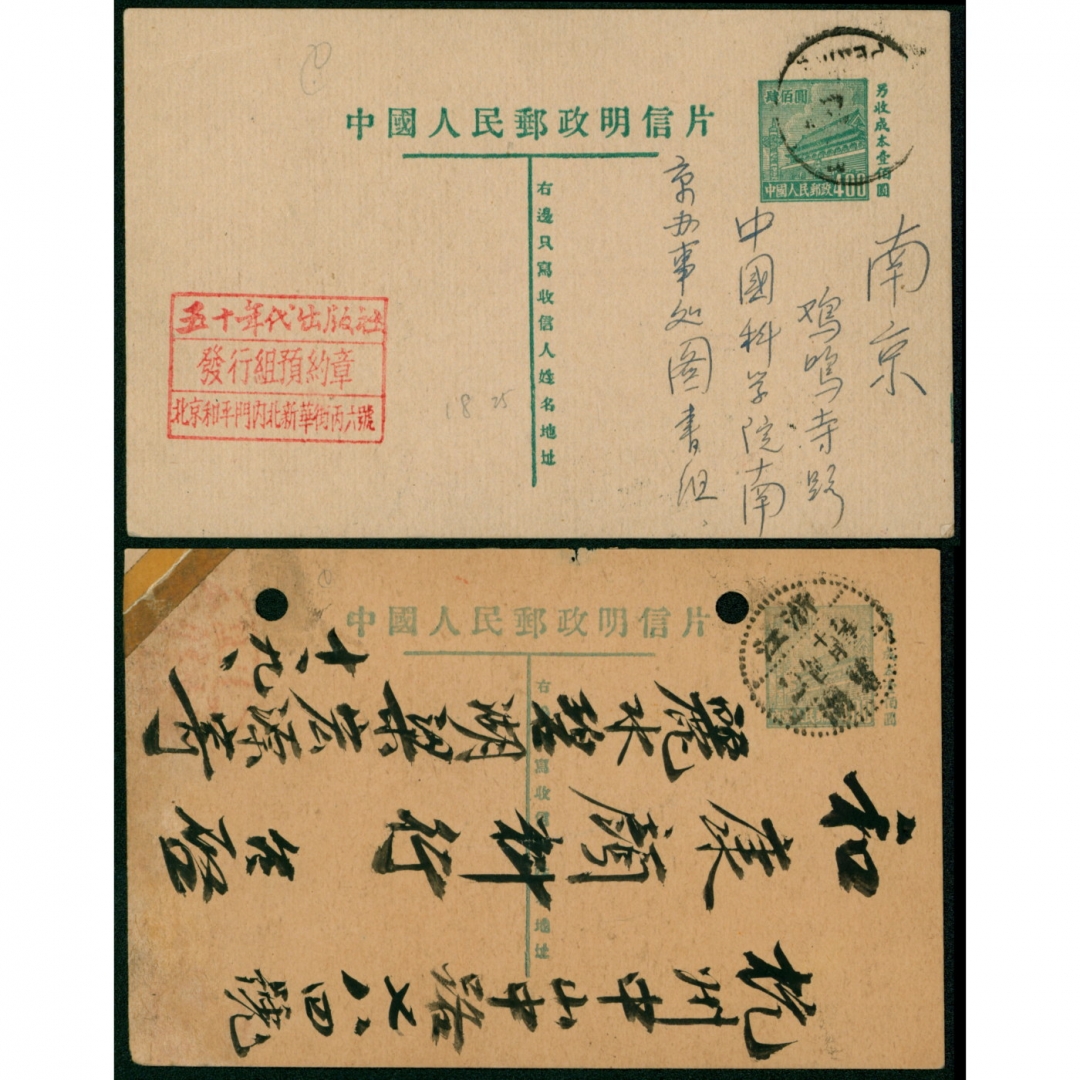 中國人民郵政明信片
肆佰圓
中國人民郵政400
另收成本壹佰圓
右邊只寫收信人姓名地址
南京
鸡鸣寺路
中國科学院南
京办事处图書组
五十年代出版社
發行組預約章
北京和平門內北新華街丙六號
18 25
中國人民郵政明信片
浙江
碧湖
杭州中山中路七八四號
和康顏料行
台啓
麗水碧湖梁宏源寄
十、九、